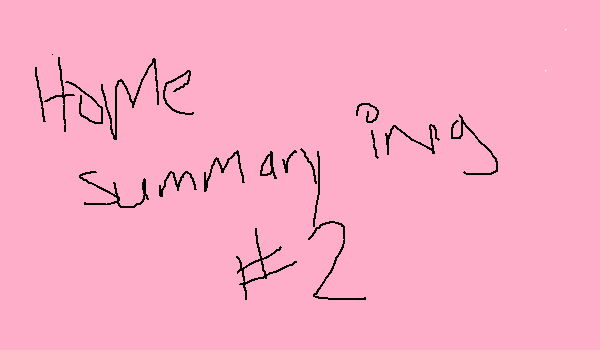 Home
summary img
#2